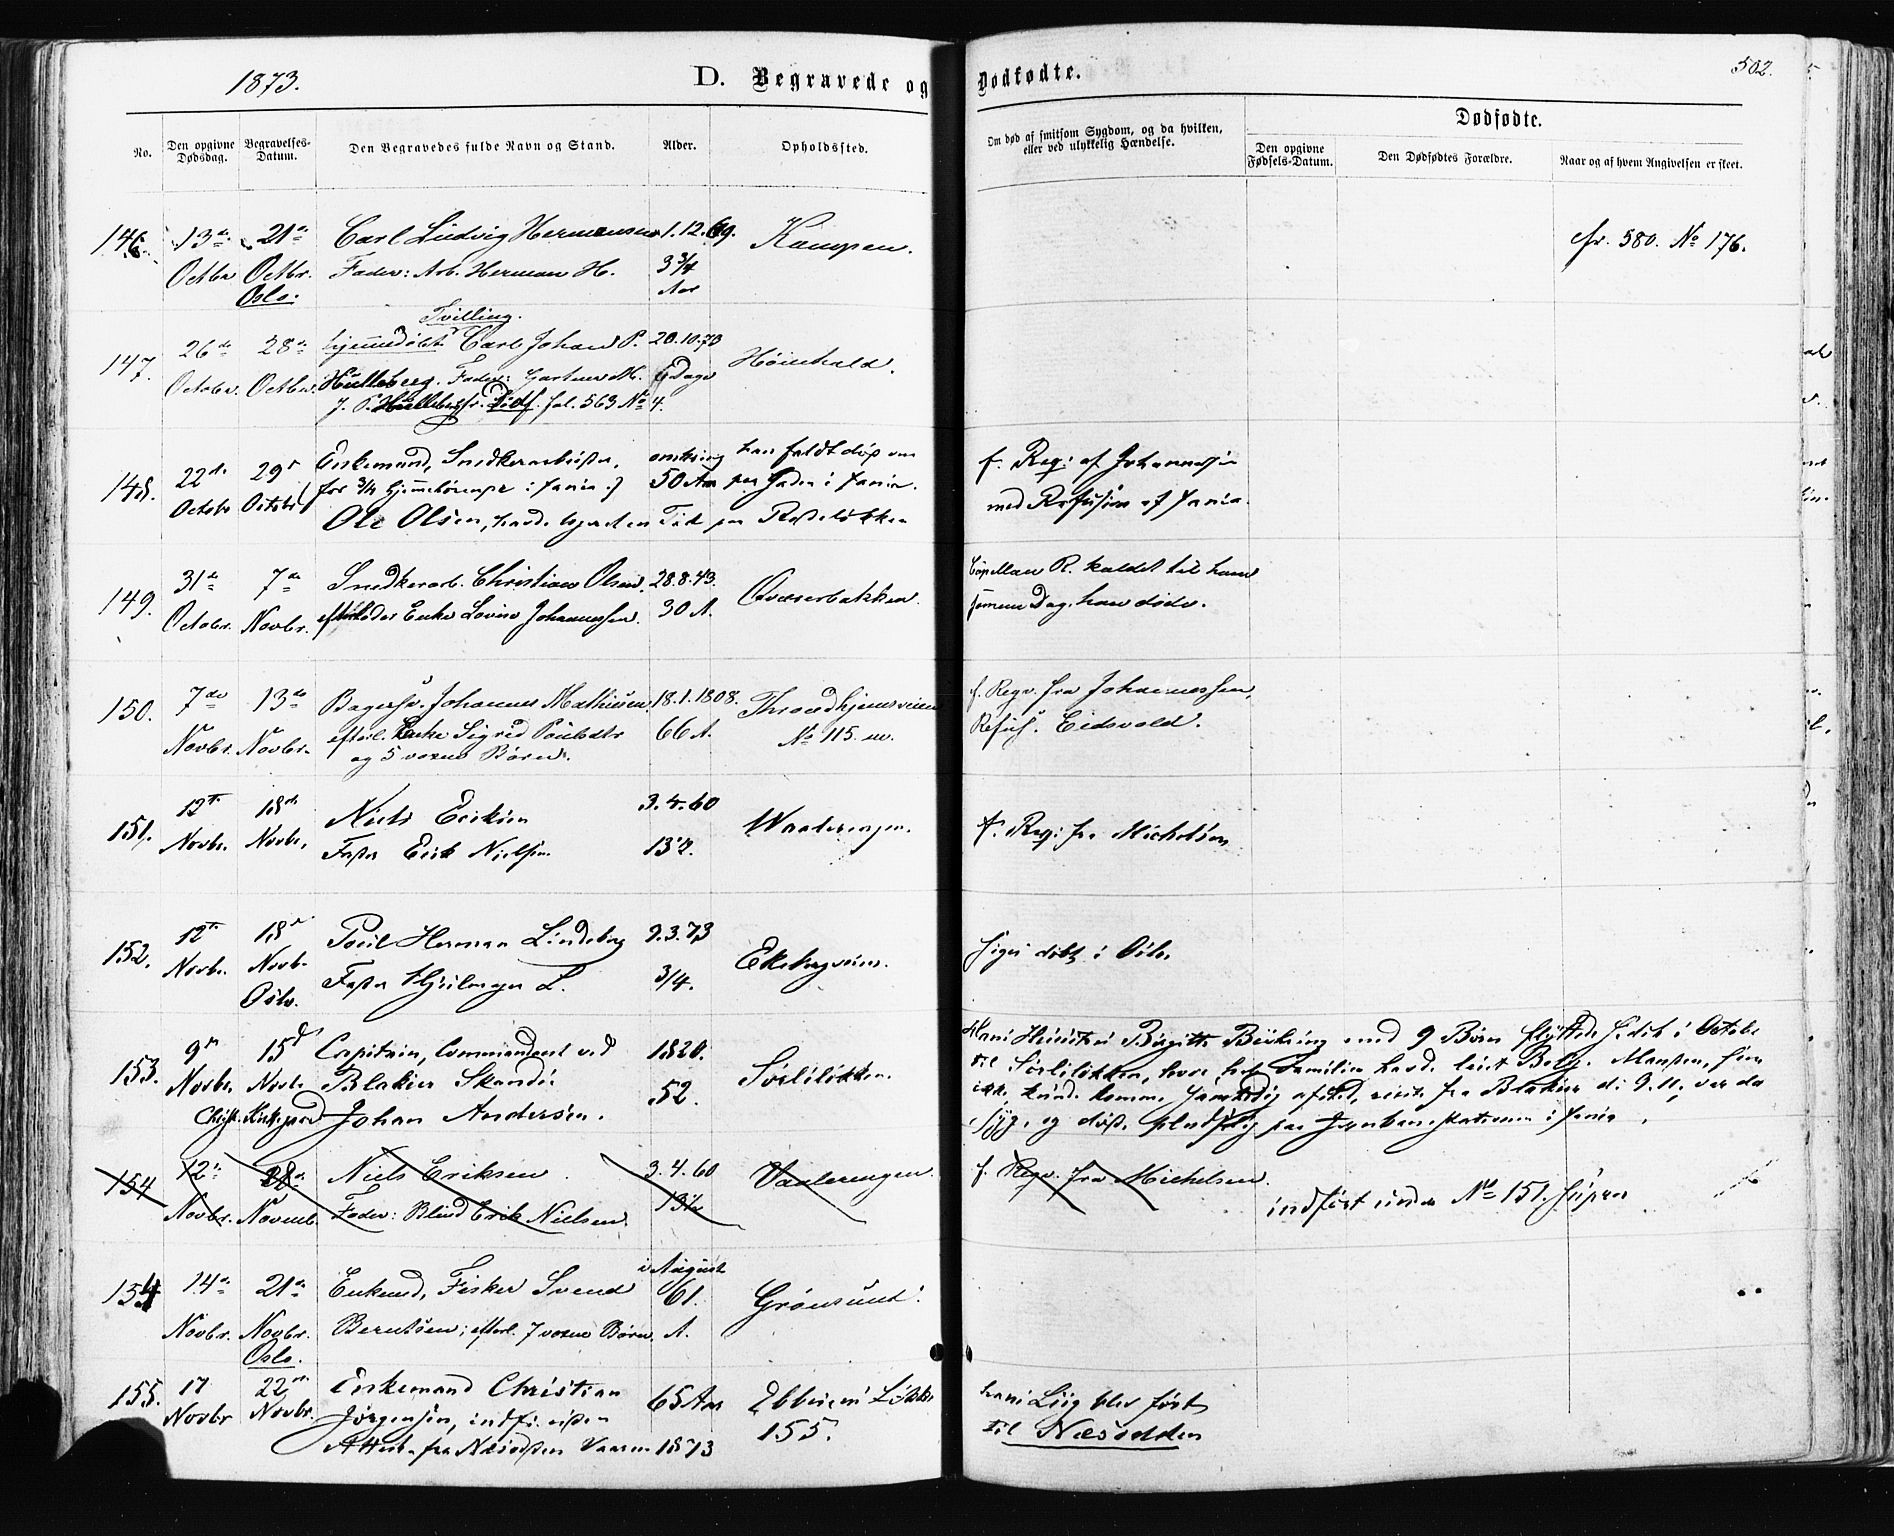 1873.
D. Begravede og Dødfødte.
502.
No.
Den opgivne Dødsdag.
Begravelses-Datum.
Den Begravedes fulde Navn og Stand.
Alder.
Opholdssted.
Om død af smitsom Sygdom, og da hvilken, eller ved ulykkelig Hændelse.
Dødfødte.
Den opgivne Fødsels-Datum.
Den Dødfødtes Forældre.
Naar og af hvem Angivelsen er skeet.
146. 13de 21de Carl Ludvig Hermansen 1.12.69. Kampen. cfr. 580. No 176.
Octbr Octbr. Fader: Arb. Herman H. 3 3/4
Oslo. Aar
Tvilling.
147. 26de 28de hjemmedøbt Carl Johan P. 20.10.73 Höienhald.
Octobr. Octbr. Hulleberg. Fader: Gartner M. 6 Dage
J. P. Hulleberg fr. Dødf. fol. 563 No 4.
148. 22de 29 Enkemand, Snedkerarbeider, omkring han faldt død om f. Reqv: af Johannesen
Octobr Octobr for 3/4 hjemhørende i 50 Aar paa Gaden i med Refusion af
Ole Olsen, havde logeret en Tid paa Rodeløkken
149. 31te 7de Snedkerarb. Christian Olsen, 28.8.43. Qværnerbakken. Capellan R. kaldet til ham
Octobr. Novbr. efterlader Enke Lovise Johannessen. 30 A. samme Dag, han døde.
150. 7de 13de Bagersv. Johannes Mathiesen, 18.1.1808. Throndhjemsveien f. Reqv. fra Johannessen,
Novbr. Novbr. efterl. Enke Sigrid Poulsdtr 66 A. No 115. Refus. Eidsvold.
og 5 voxne Børn.
151. 12te 18de Niels Eriksen 3.4.60 Vaalerengen. f. Reqv: fra Michelsen
Novbr. Novbr. Fader Erik Nielsen 13 1/2.
152. 12te 18de Poul Herman Lindeberg 9.3.73 Ekebergveien. siges døbt i Oslo
Novbr. Novbr. Fader L. 3/4.
Oslo.
153. 9de 15d Capitain, Commandant ved 1820. Sörlilökken. Hans Hustru Birgitte med 9 Børn flyttede hertil i Octobr
Novbr. Novbr Blakiær Skandse 52. til Sörlilökken, hvor hele Familien havde leiet Bolig. Manden, som
Christ. Kirkegaard Johan Andersen. ikke kunde komme samtidig afsted, reiste fra Blakiær d: 9.11, var da
syg, og døde pludselig paa Jernbanestationen i
154 12te 18de Niels Eriksen 3.4.60 Vaalerengen. f. Reqv. fra Michelsen.
Novbr. Novemb. Fader: Blind Erik Nielsen. 13 1/2 indført under No 151. supra
154 14de 21de Enkemd, Fisker Svend i August Grönsund.
Novbr. Novbr. Berntsen; efterl. 7 voxne Børn. 61. A.
Oslo.
155. 17 22de Enkemand Christian 65 Aar Ebbesens Løkke hans Liig blev ført
Novbr Novbr. Jørgensen, indfl. siden 155. til Næsodden
Attest fra Næsodden Vaaren 1873